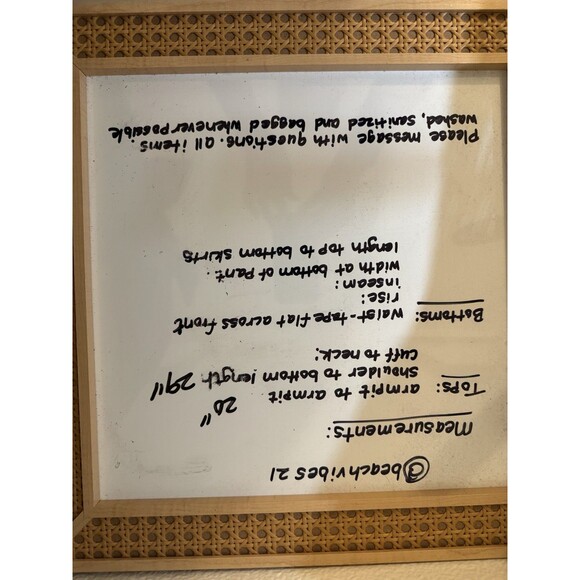 @beachvibes21
Measurements:
Tops: armpit to armpit 20"
Shoulder to bottom length 29"
cuff to neck:
Bottoms: waist-tape flat across front
rise:
inseam:
width at bottom of Pant:
length top to bottom skirts
Please message with questions. all items
washed, sanitized and bagged whenever possible